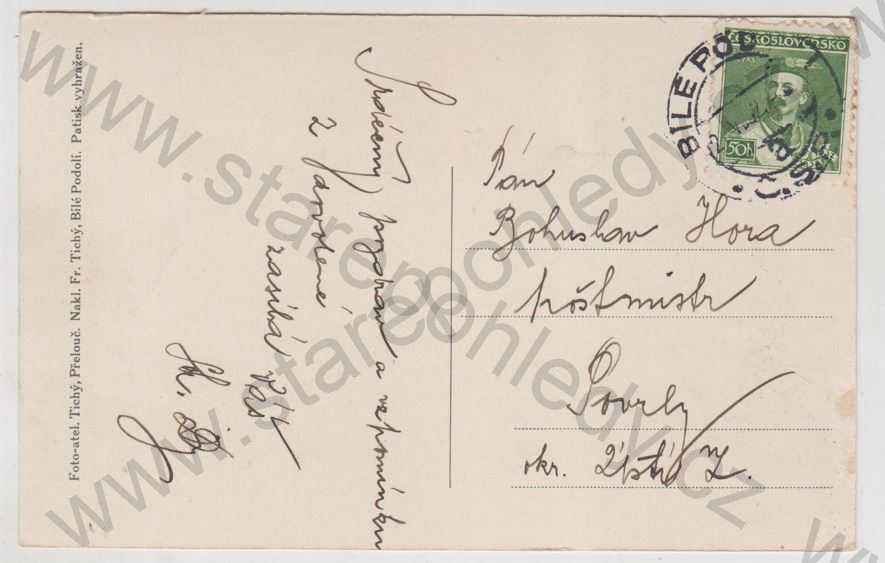 Foto-atel. Tichý, Přelouč. Nakl. Fr. Tichý, Bílé Podolí. Patisk vyhražen.
Srdečný pozdrav a vzpomínku
z
zasílá Váš
ČESKOSLOVENSKO
50h
BÍLÉ POD
Pán
Bohuslav Hora
poštmistr
Povrly
okr. Ústí
www.staremohledy.cz
www.staremohledy.cz